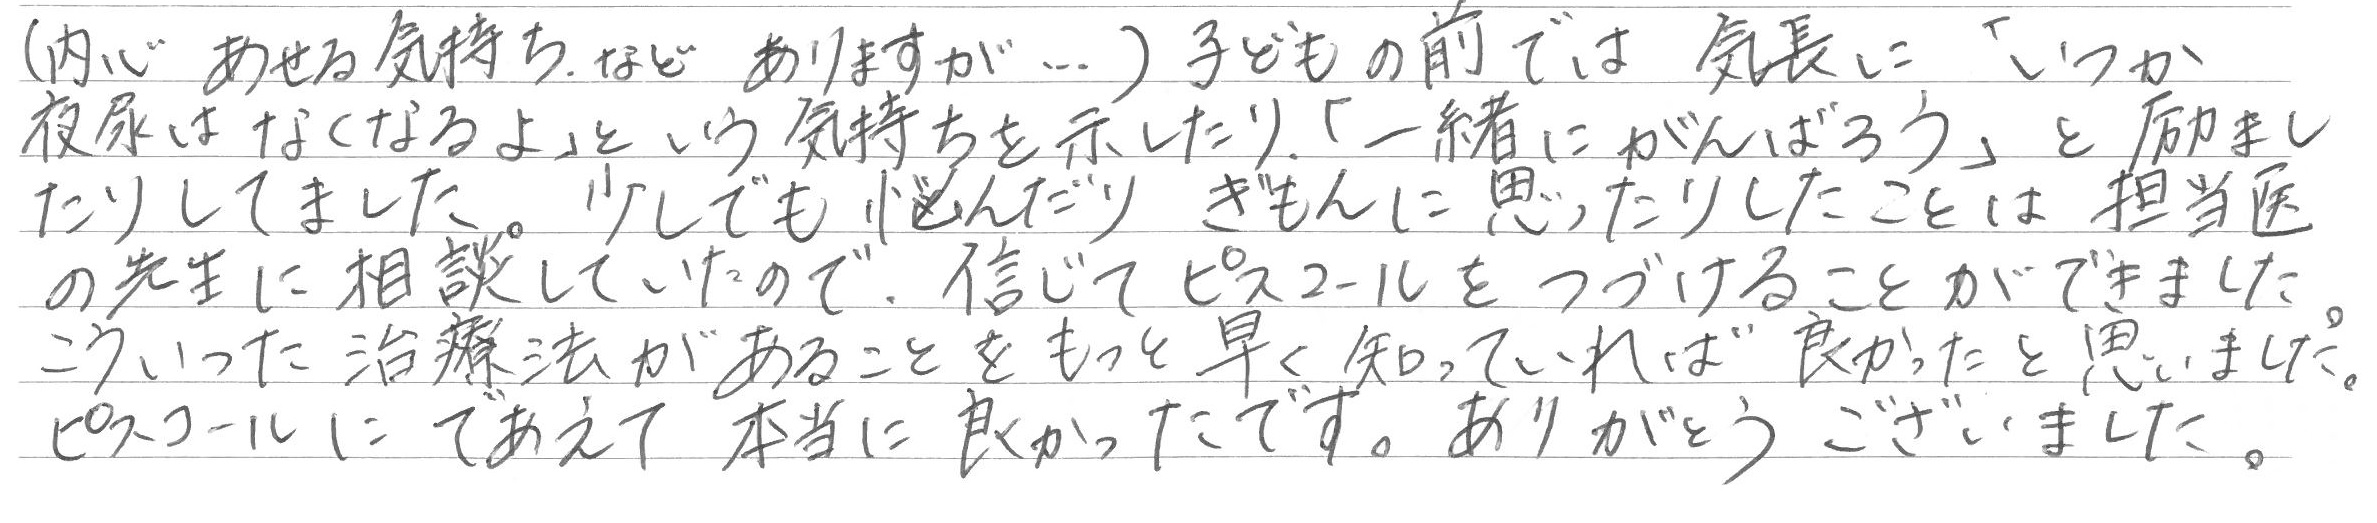 (内心 あせる気持ち、など ありますが…) 子どもの前では 気長に「いつか
夜尿は なくなるよ」という 気持ちを示したり、「一緒に がんばろう」と 励まし
たりしてました。少しでも 悩んだり ぎもんに思ったりしたことは 担当医
の先生に 相談していたので、信じて ピスコールを つづけることができました。
こういった 治療法が あることを もっと 早く 知っていれば 良かったと思いました。
ピスコールに であえて 本当に 良かったです。ありがとう ございました。